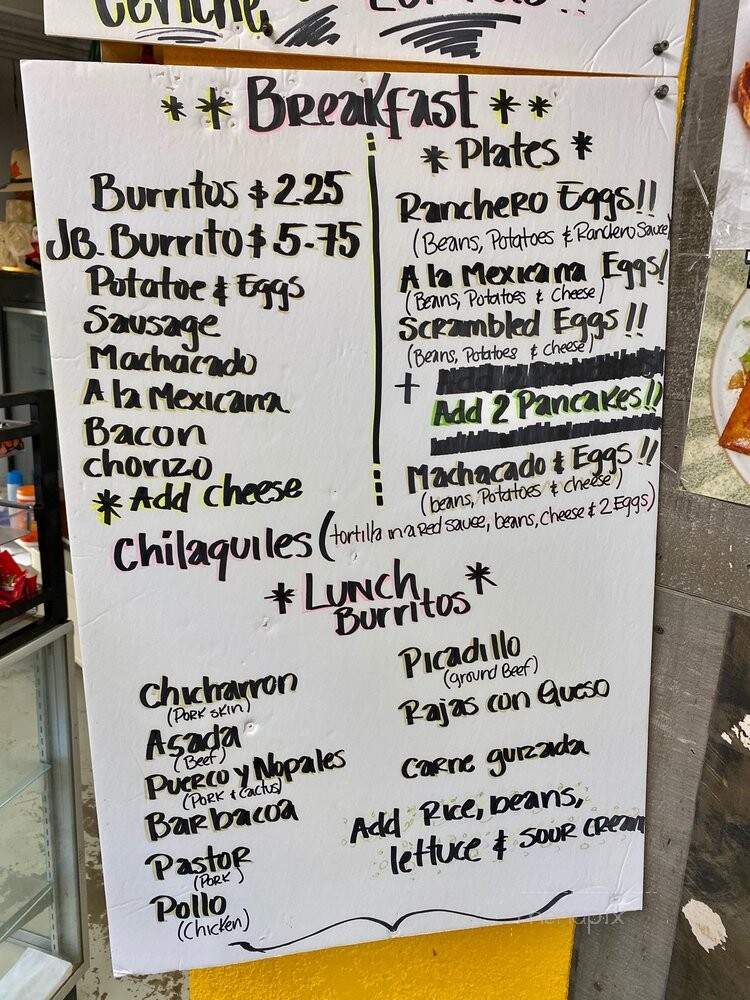 Ceviche
* * Breakfast * *
Burritos $ 2.25
JB. Burrito $ 5.75
Potatoe & Eggs
Sausage
Machacado
A la Mexicana
Bacon
chorizo
* Add cheese
* Plates *
Ranchero Eggs!!
(Beans, Potatoes & Ranchero Sauce)
A la Mexicana Eggs!
(Beans, Potatoes & Cheese)
Scrambled Eggs !!
(Beans, Potatoes & cheese)
+ Add 2 Pancakes!!
Machacado & Eggs !!
(beans, Potatoes & cheese)
Chilaquiles (tortilla in a Red sauce, beans, cheese & 2 Eggs)
* Lunch *
Burritos
Chicharron
(Pork skin)
Asada
(Beef)
Puerco y Nopales
(Pork & cactus)
Barbacoa
Pastor
(Pork)
Pollo
(Chicken)
Picadillo
(ground Beef)
Rajas con Queso
Carne guizada
Add Rice, beans,
lettuce & sour cream